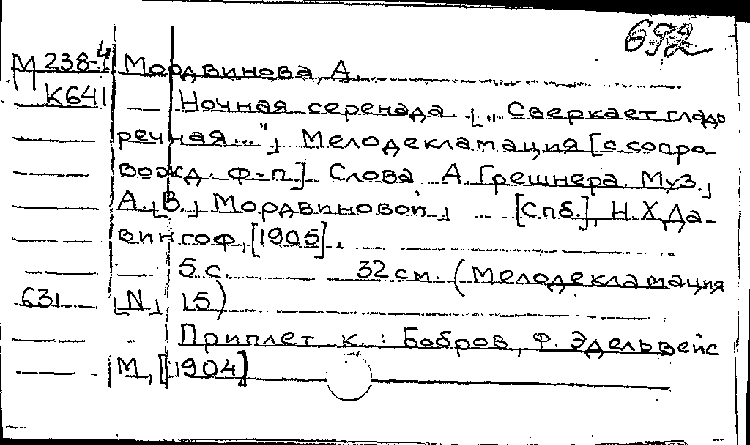 692
М 238-4 Мордвинова, А.
К641 Ночная серенада [„Сверкает гладь
речная..."] Мелодекламация [с сопро-
вожд. ф-п.] Слова А. Грешнера. Муз.
А. [В.] Мордвиновой [Спб.], Н.Х. Да-
вингоф, [1905].
5 с. 32 см. (Мелодекламация
631 [N] 15)
Приплет к : Бобров, Ф. Эдельвейс
М, [1904]